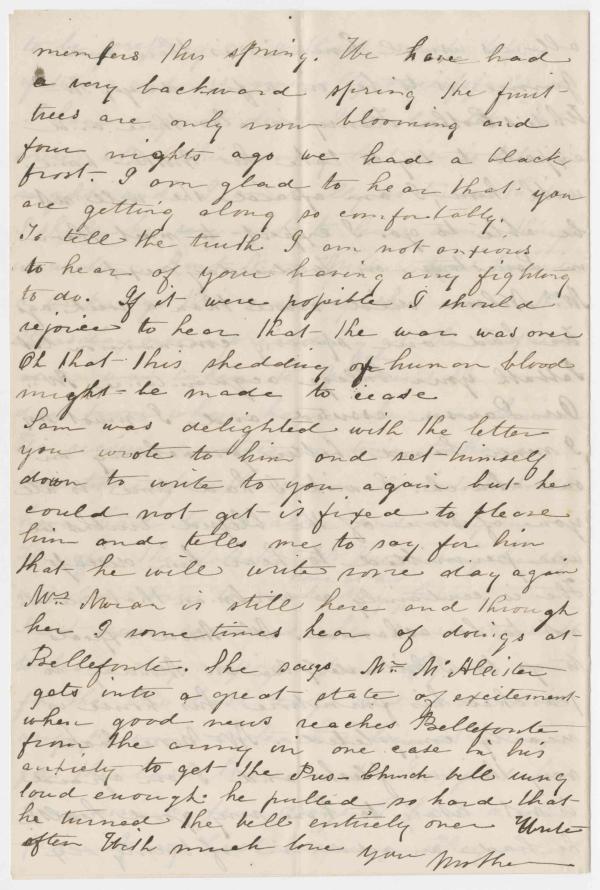 members this spring. We have had
a very backward spring the fruit
trees are only now blooming and
four nights ago we had a black
frost. I am glad to hear that you
are getting along so comfortably.
To tell the truth I am not anxious
to hear of your having any fighting
to do. If it were possible I should
rejoice to hear that the war was over
Oh that this shedding of human blood
might be made to cease
Sam was delighted with the letter
you wrote to him and set himself
down to write to you again but he
could not get is fixed to please
him and tells me to say for him
that he will write some day again
Mrs Moran is still here and through
her I sometimes hear of doings at
Bellefonte. She says Mr McAllister
gets into a great state of excitement
when good news reaches Bellefonte
from the army in one case in his
anxiety to get the Pres-Church bell rung
loud enough he pulled so hard that
he turned the bell entirely over Write
often With much love your Mother